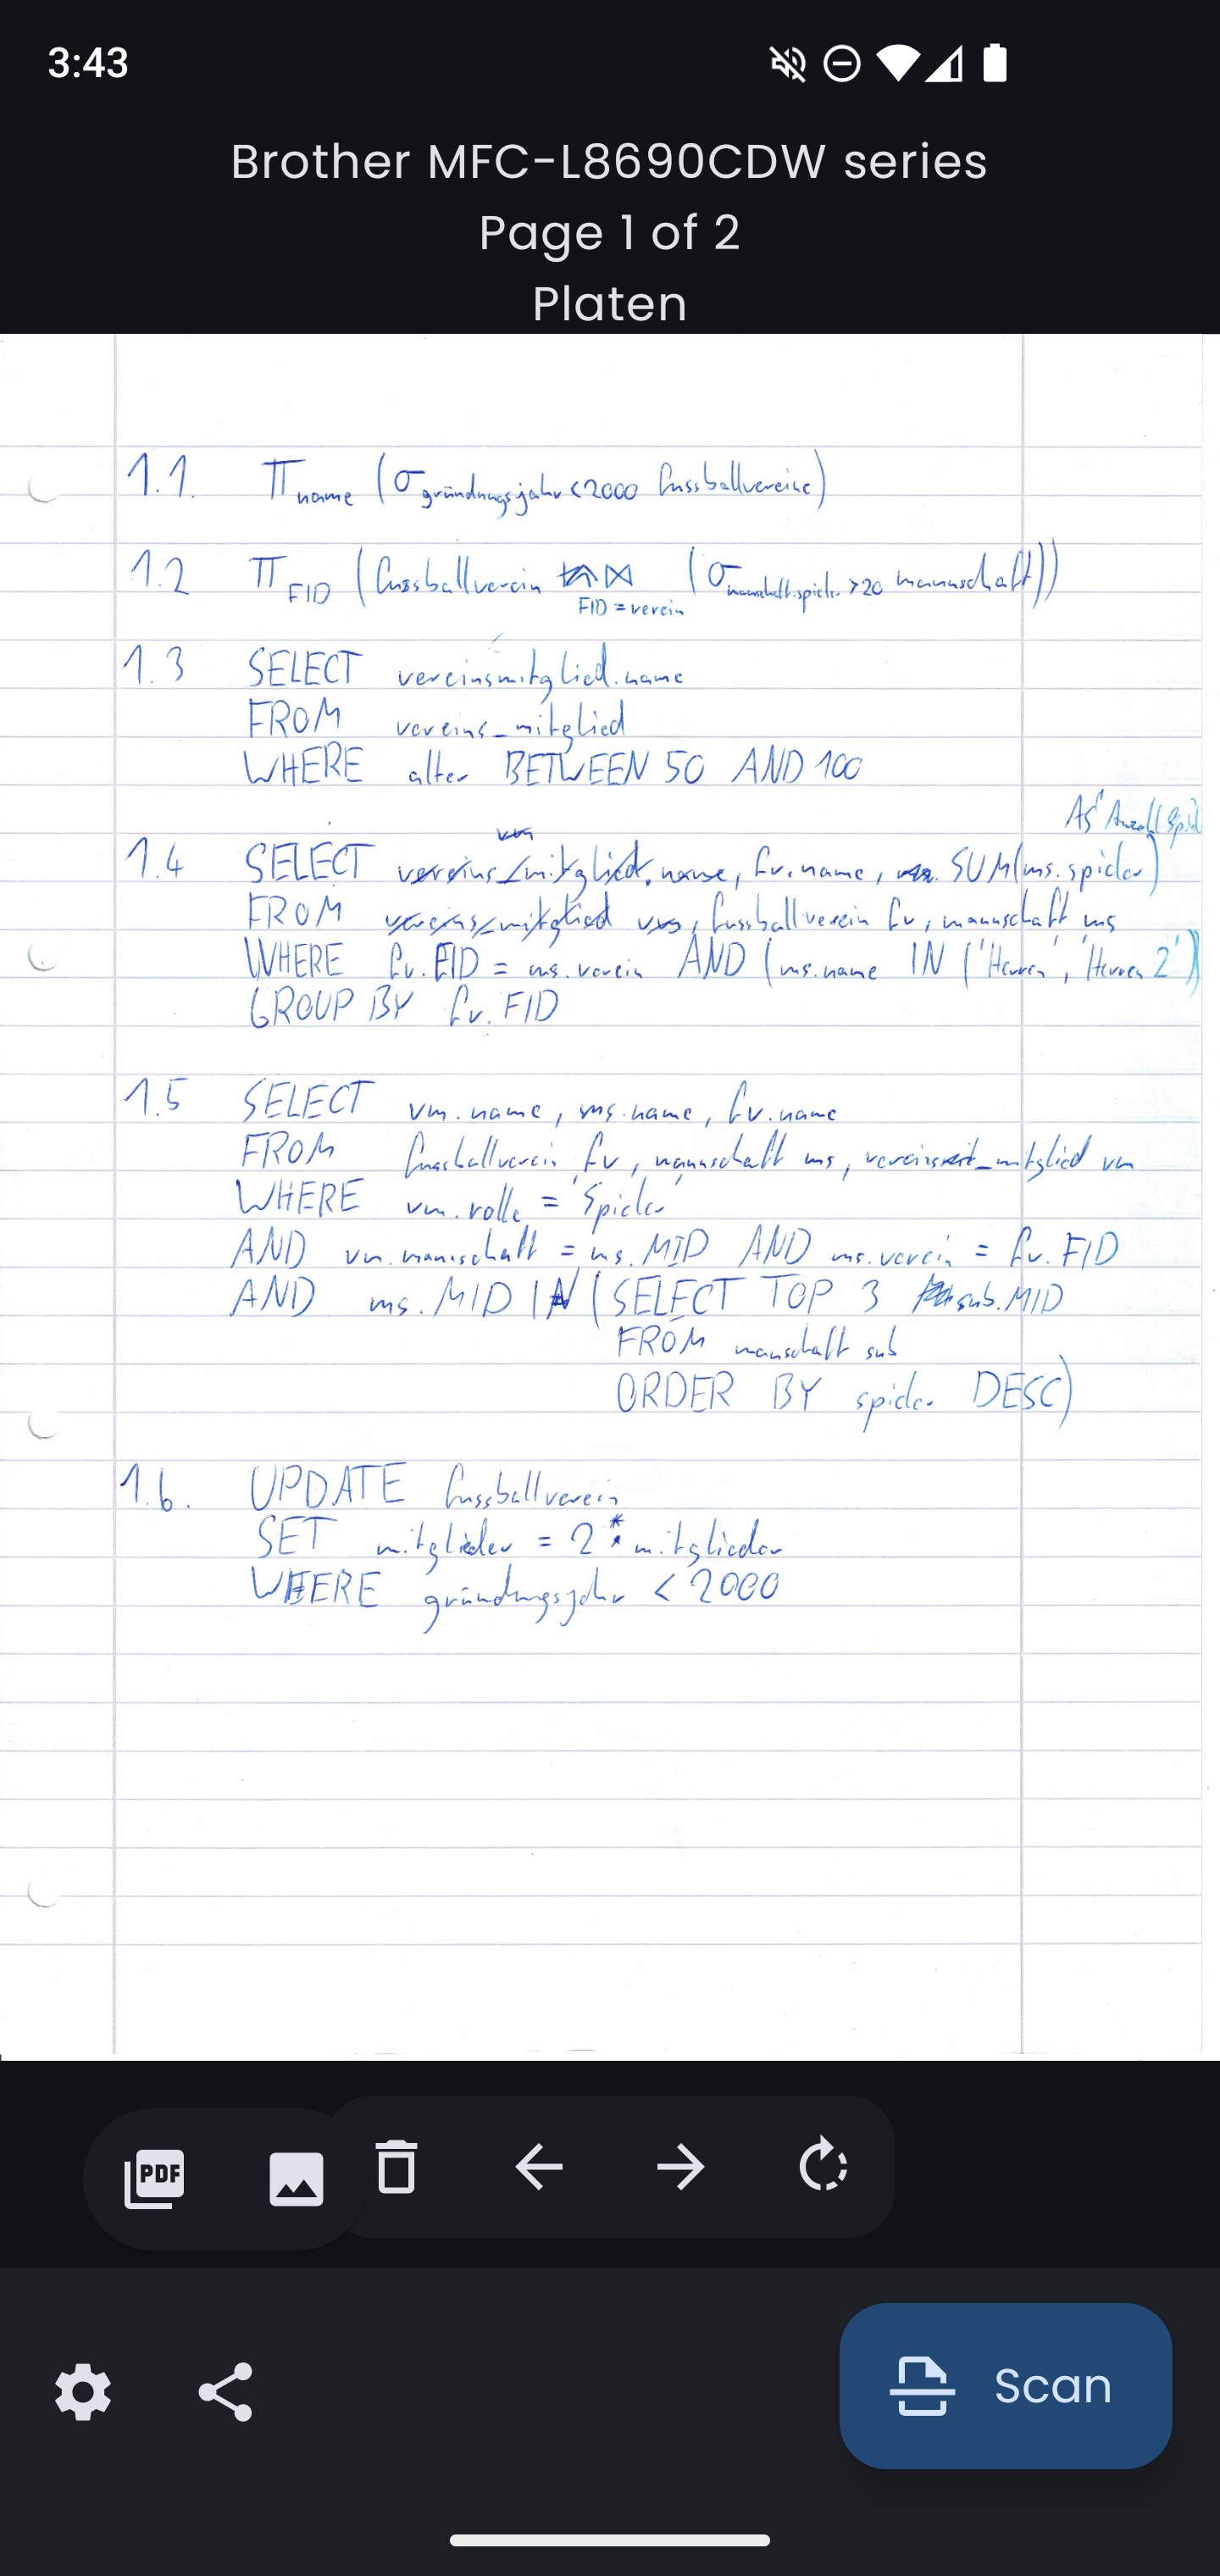 3:43
Brother MFC-L8690CDW series
Page 1 of 2
Platen
1.1. π name (σ gründungsjahr<2000 fussballvereine)
1.2 π FID (fussballverein ⋈ FID = verein (σ mannschaft.spieler >20 mannschaft))
1.3 SELECT vereinsmitglied.name
FROM vereins_mitglied
WHERE alter BETWEEN 50 AND 100
AS Anzahl
1.4 SELECT fv.name, SUM(ms.spieler)
FROM fussballverein fv, mannschaft ms
WHERE fv.FID = ms.verein AND (ms.name IN ('Herren', 'Herren 2')
GROUP BY fv.FID
1.5 SELECT vm.name, ms.name, fv.name
FROM fussballverein fv, mannschaft ms, vereins_mitglied vm
WHERE vm.rolle = 'Spieler'
AND vm.mannschaft = ms.MID AND ms.verein = fv.FID
AND ms.MID IN (SELECT TOP 3 sub.MID
FROM manschaft sub
ORDER BY spieler DESC)
1.6. UPDATE fussballverein
SET mitglieder = 2 * mitglieder
WHERE gründungsjahr < 2000
PDF
Scan